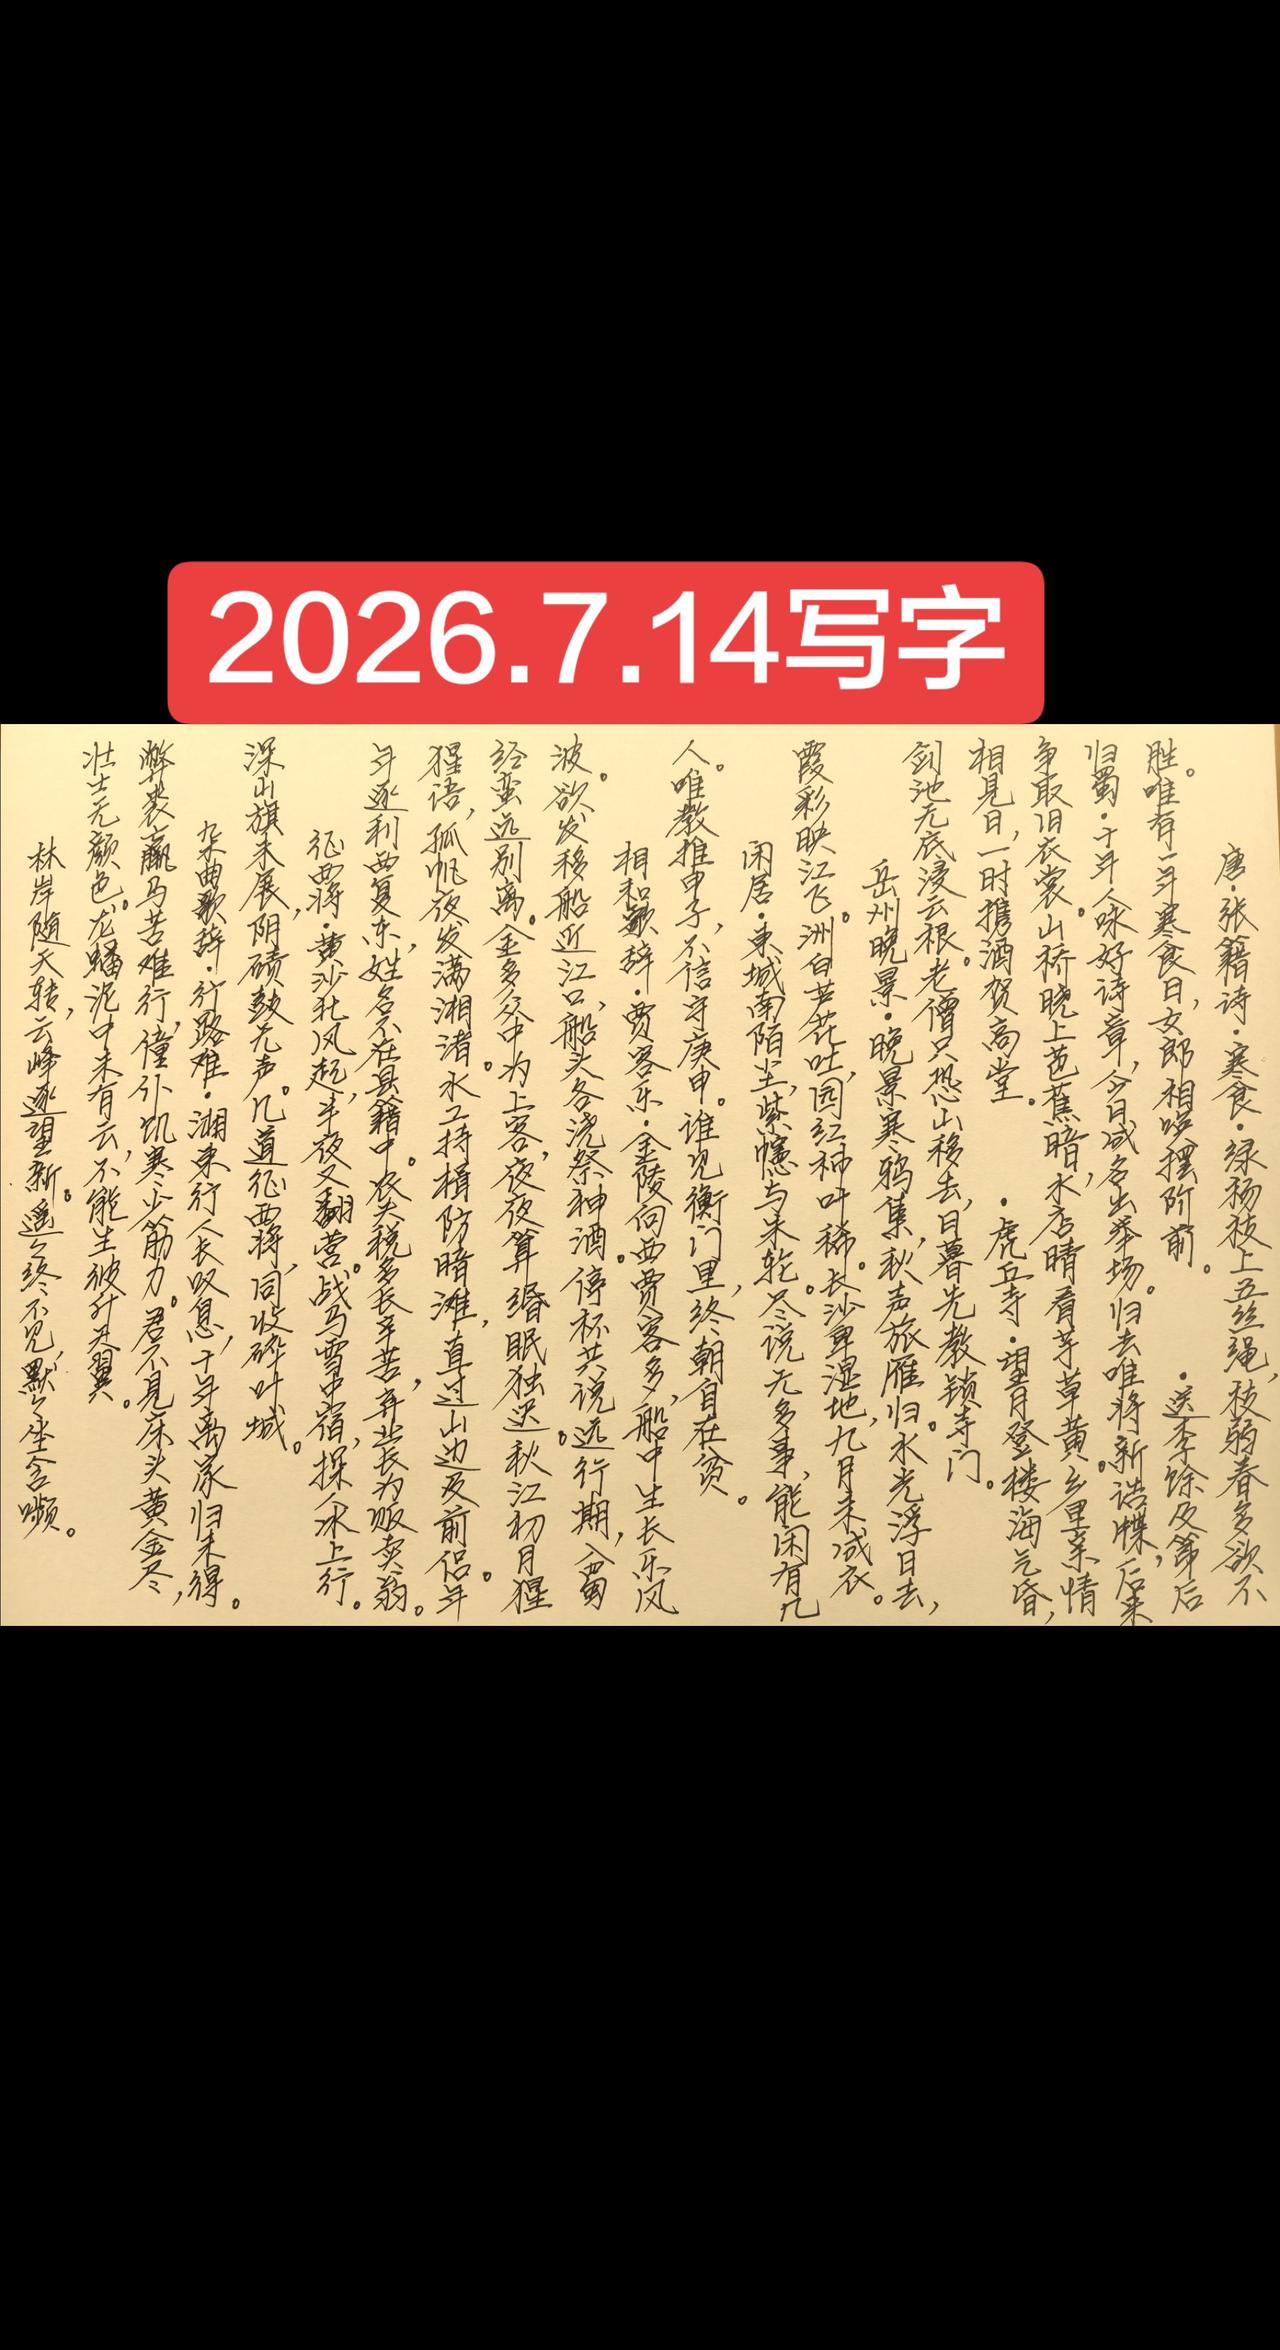 2026.7.14写字
唐·张籍诗·寒食·绿杨枝上五丝绳,枝弱春多欲不
胜。唯有一年寒食日,女郎相唤摆阶前。·送李馀及第后
归蜀·十年人咏好诗章,今日成名出举场。归去唯将新诰牒,后来
争取旧衣裳。山桥晓上芭蕉暗,水店晴看芋草黄。乡里亲情
相见日,一时携酒贺高堂。·虎丘寺·望月登楼海气昏,
剑池无底浸云根。老僧只恐山移去,日暮先教锁寺门。
岳州晚景·晚景寒鸦集,秋声旅雁归。水光浮日去,
霞彩映江飞。洲白芦花吐,园红柿叶稀。长沙卑湿地,九月未成衣。
闲居·东城南陌尘,紫幰与朱轮。尽说无多事,能闲有几
人。唯教推甲子,不信守庚申。谁见衡门里,终朝自在贫。
相和歌辞·贾客乐·金陵向西贾客多,船中生长乐风
波。欲发移船近江口,船头各浇祭神酒。停杯共说远行期,入蜀
经蛮远别离。金多众中为上客,夜夜算缗眠独迟。秋江初月猩
猩语,孤帆夜发满湘渚。水工持楫防暗滩,直过山边及前侣。年
年逐利西复东,姓名不在县籍中。农夫税多长辛苦,弃业长为贩卖翁。
征西将·黄沙北风起,半夜又翻营。战马雪中宿,探人冰上行。
深山旗未展,阴碛鼓无声。几道征西将,同收碎叶城。
杂曲歌辞·行路难·湘东行人长叹息,十年离家归未得。
弊裘羸马苦难行,僮仆饥寒少筋力。君不见床头黄金尽,
壮士无颜色。龙蟠泥中未有云,不能生彼升天翼。
林岸随天转,云峰逐望新。遥々终不见,默々坐含嚬。